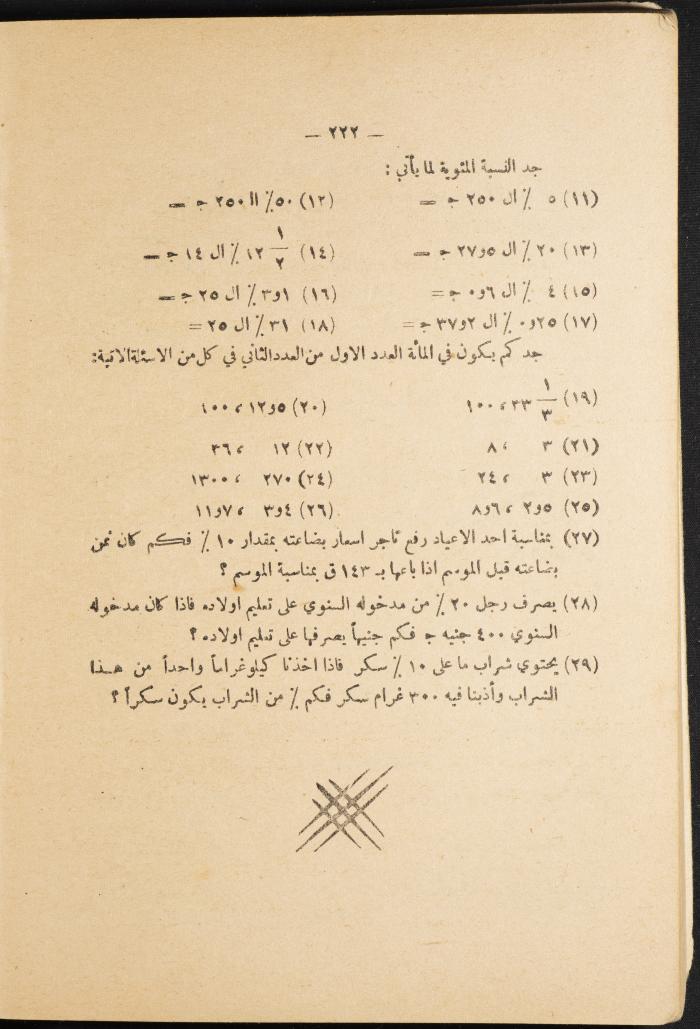 — ٢٢٢ —
جد النسبة المئوية لما يأتي :
(١١) ٥ ٪ ال ٢٥٠ ج = (١٢) ٥٠٪ ال ٢٥٠ ج =
(١٣) ٢٠ ٪ ال ٢٧و٥ ج = (١٤) ١٢ ١/٢ ٪ ال ١٤ ج =
(١٥) ٤ ٪ ال ٠و٦ ج = (١٦) ٣و١ ٪ ال ٢٥ ج =
(١٧) ٠و٢٥ ٪ ال ٣٧و٢ ج = (١٨) ٣١ ٪ ال ٢٥ =
جد كم يكون في المأة العدد الاول من العدد الثاني في كل من الاسئلة الاتية:
(١٩) ٣٣ ١/٣ ، ١٠٠ (٢٠) ١٢و٥ ، ٤٠٠
(٢١) ٣ ، ٨ (٢٢) ١٢ ، ٣٦
(٢٣) ٣ ، ٢٤ (٢٤) ٢٧٠ ، ١٣٠٠
(٢٥) ٢و٥ ، ٨و٦ (٢٦) ٣و٤ ، ١١و٧
(٢٧) بمناسبة احد الاعياد رفع تاجر اسعار بضاعته بمقدار ١٠ ٪ فكم كان ثمن
بضاعته قبل الموسم اذا باعها بـ ١٤٣ ق بمناسبة الموسم ؟
(٢٨) يصرف رجل ٢٠ ٪ من مدخوله السنوي على تعليم اولاده فاذا كان مدخوله
السنوي ٤٠٠ جنيه ج فكم جنيهاً يصرفها على تعليم اولاده ؟
(٢٩) يحتوي شراب ما على ١٠ ٪ سكر فاذا اخذنا كيلوغراماً واحداً من هذا
الشراب وأذبنا فيه ٣٠٠ غرام سكر فكم ٪ من الشراب يكون سكراً ؟